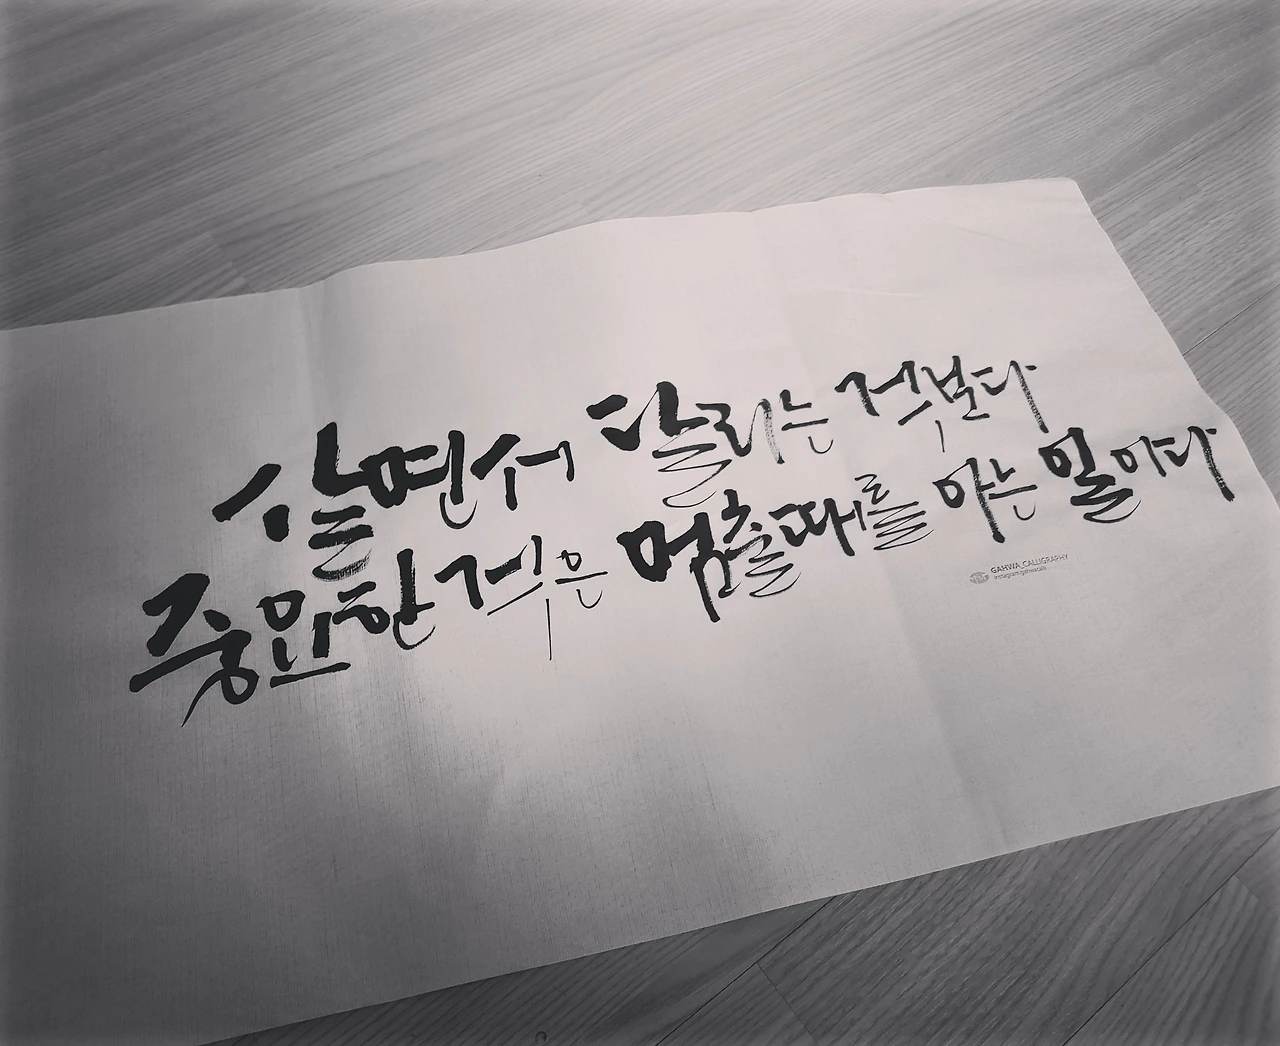 살면서 달리는 것보다
중요한 것은 멈출때를 아는 일이다
GAHWA_CALLIGRAPHY